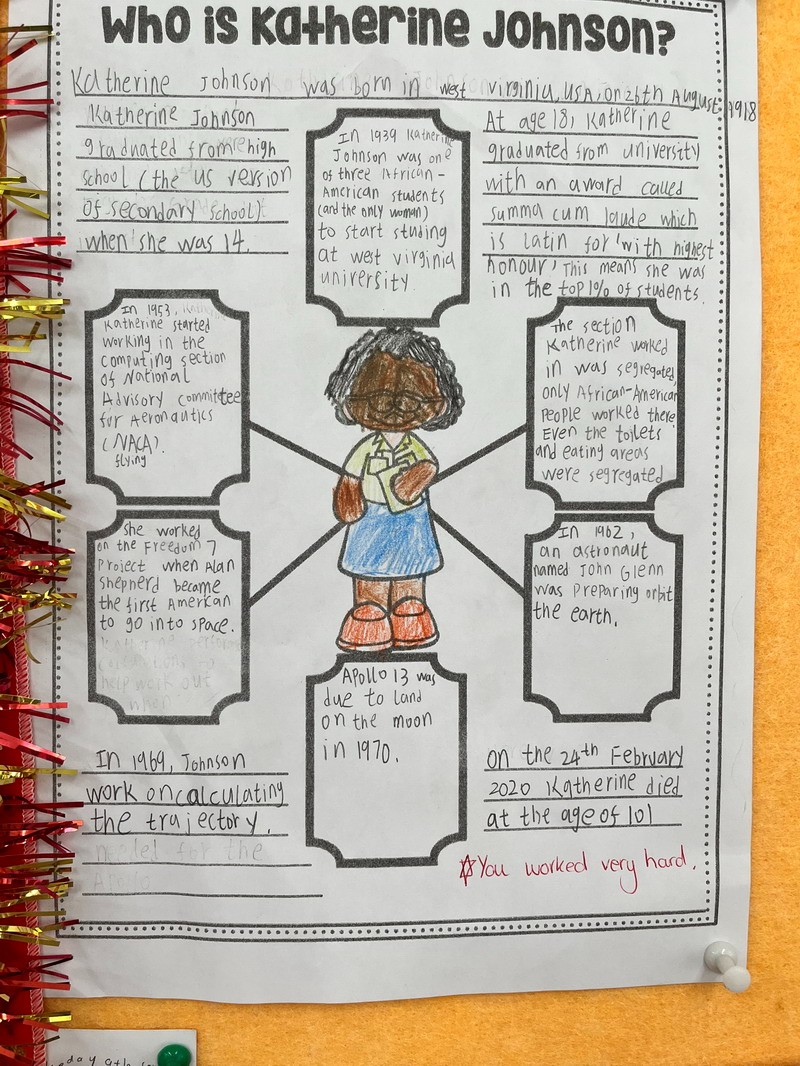 Who is Katherine Johnson?
Katherine Johnson was born in west virginia, USA, on 26th August 1918
Katherine Johnson
graduated from high
school (the US version
of secondary school)
when she was 14.
In 1939 Katherine
Johnson was one
of three African-
American students
(and the only woman)
to start studing
at west virginia
university
At age 18, Katherine
graduated from university
with an award called
summa cum laude which
is latin for 'with highest
honour', This means she was
in the top 1% of students.
In 1953,
Katherine started
working in the
computing section
of National
Advisory committee
for Aeronautics
(NACA).
flying
The section
Katherine worked
in was segregated
only African-American
People worked there
Even the toilets
and eating areas
were segregated
She worked
on the Freedom 7
Project when Alan
Shepherd became
the first American
to go into space.
In 1962,
an astronaut
named John Glenn
was Preparing orbit
the earth.
Apollo 13 was
due to land
on the moon
in 1970.
In 1969, Johnson
work on calculating
the trajectory.
model for the
Apollo
on the 24th February
2020 Katherine died
at the age of 101
You worked very hard.